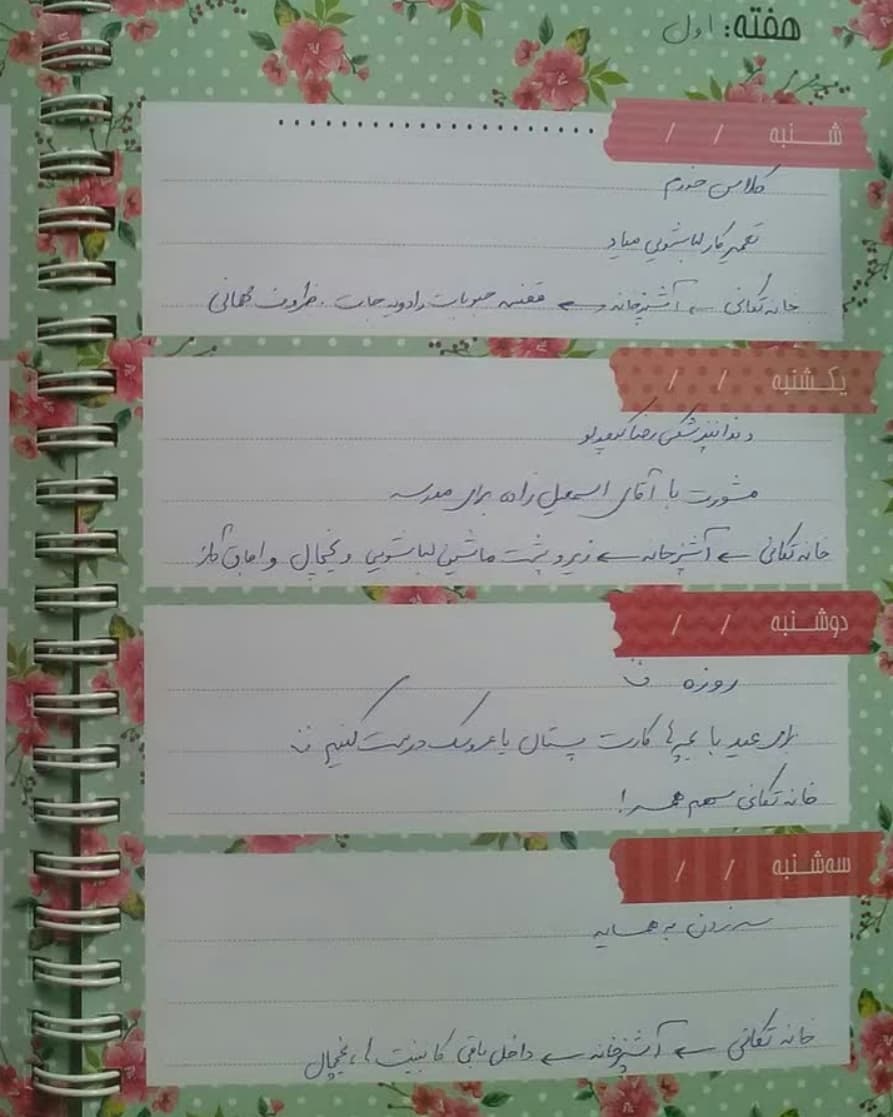 هفته: اول
شنبه / /
کلاس خودم
تعمیرکار لباسشویی میاد
خانه تکانی ← آشپزخانه ← قفسه حبوبات و ادویه جات . ظروف
یکشنبه / /
دندانپزشکی رضا
مشورت با آقای اسمعیل زاده برای مدرسه
خانه تکانی ← آشپزخانه ← زیر و پشت ماشین لباسشویی و یخچال و اجاق گاز
دوشنبه / /
روزه
برای عید با بچه ها کارت پستال یا عروسک درست کنیم
خانه تکانی سهم همسر!
سه‌شنبه / /
سر زدن به همسایه
خانه تکانی ← آشپزخانه ← داخل باقی کابینت ها، یخچال